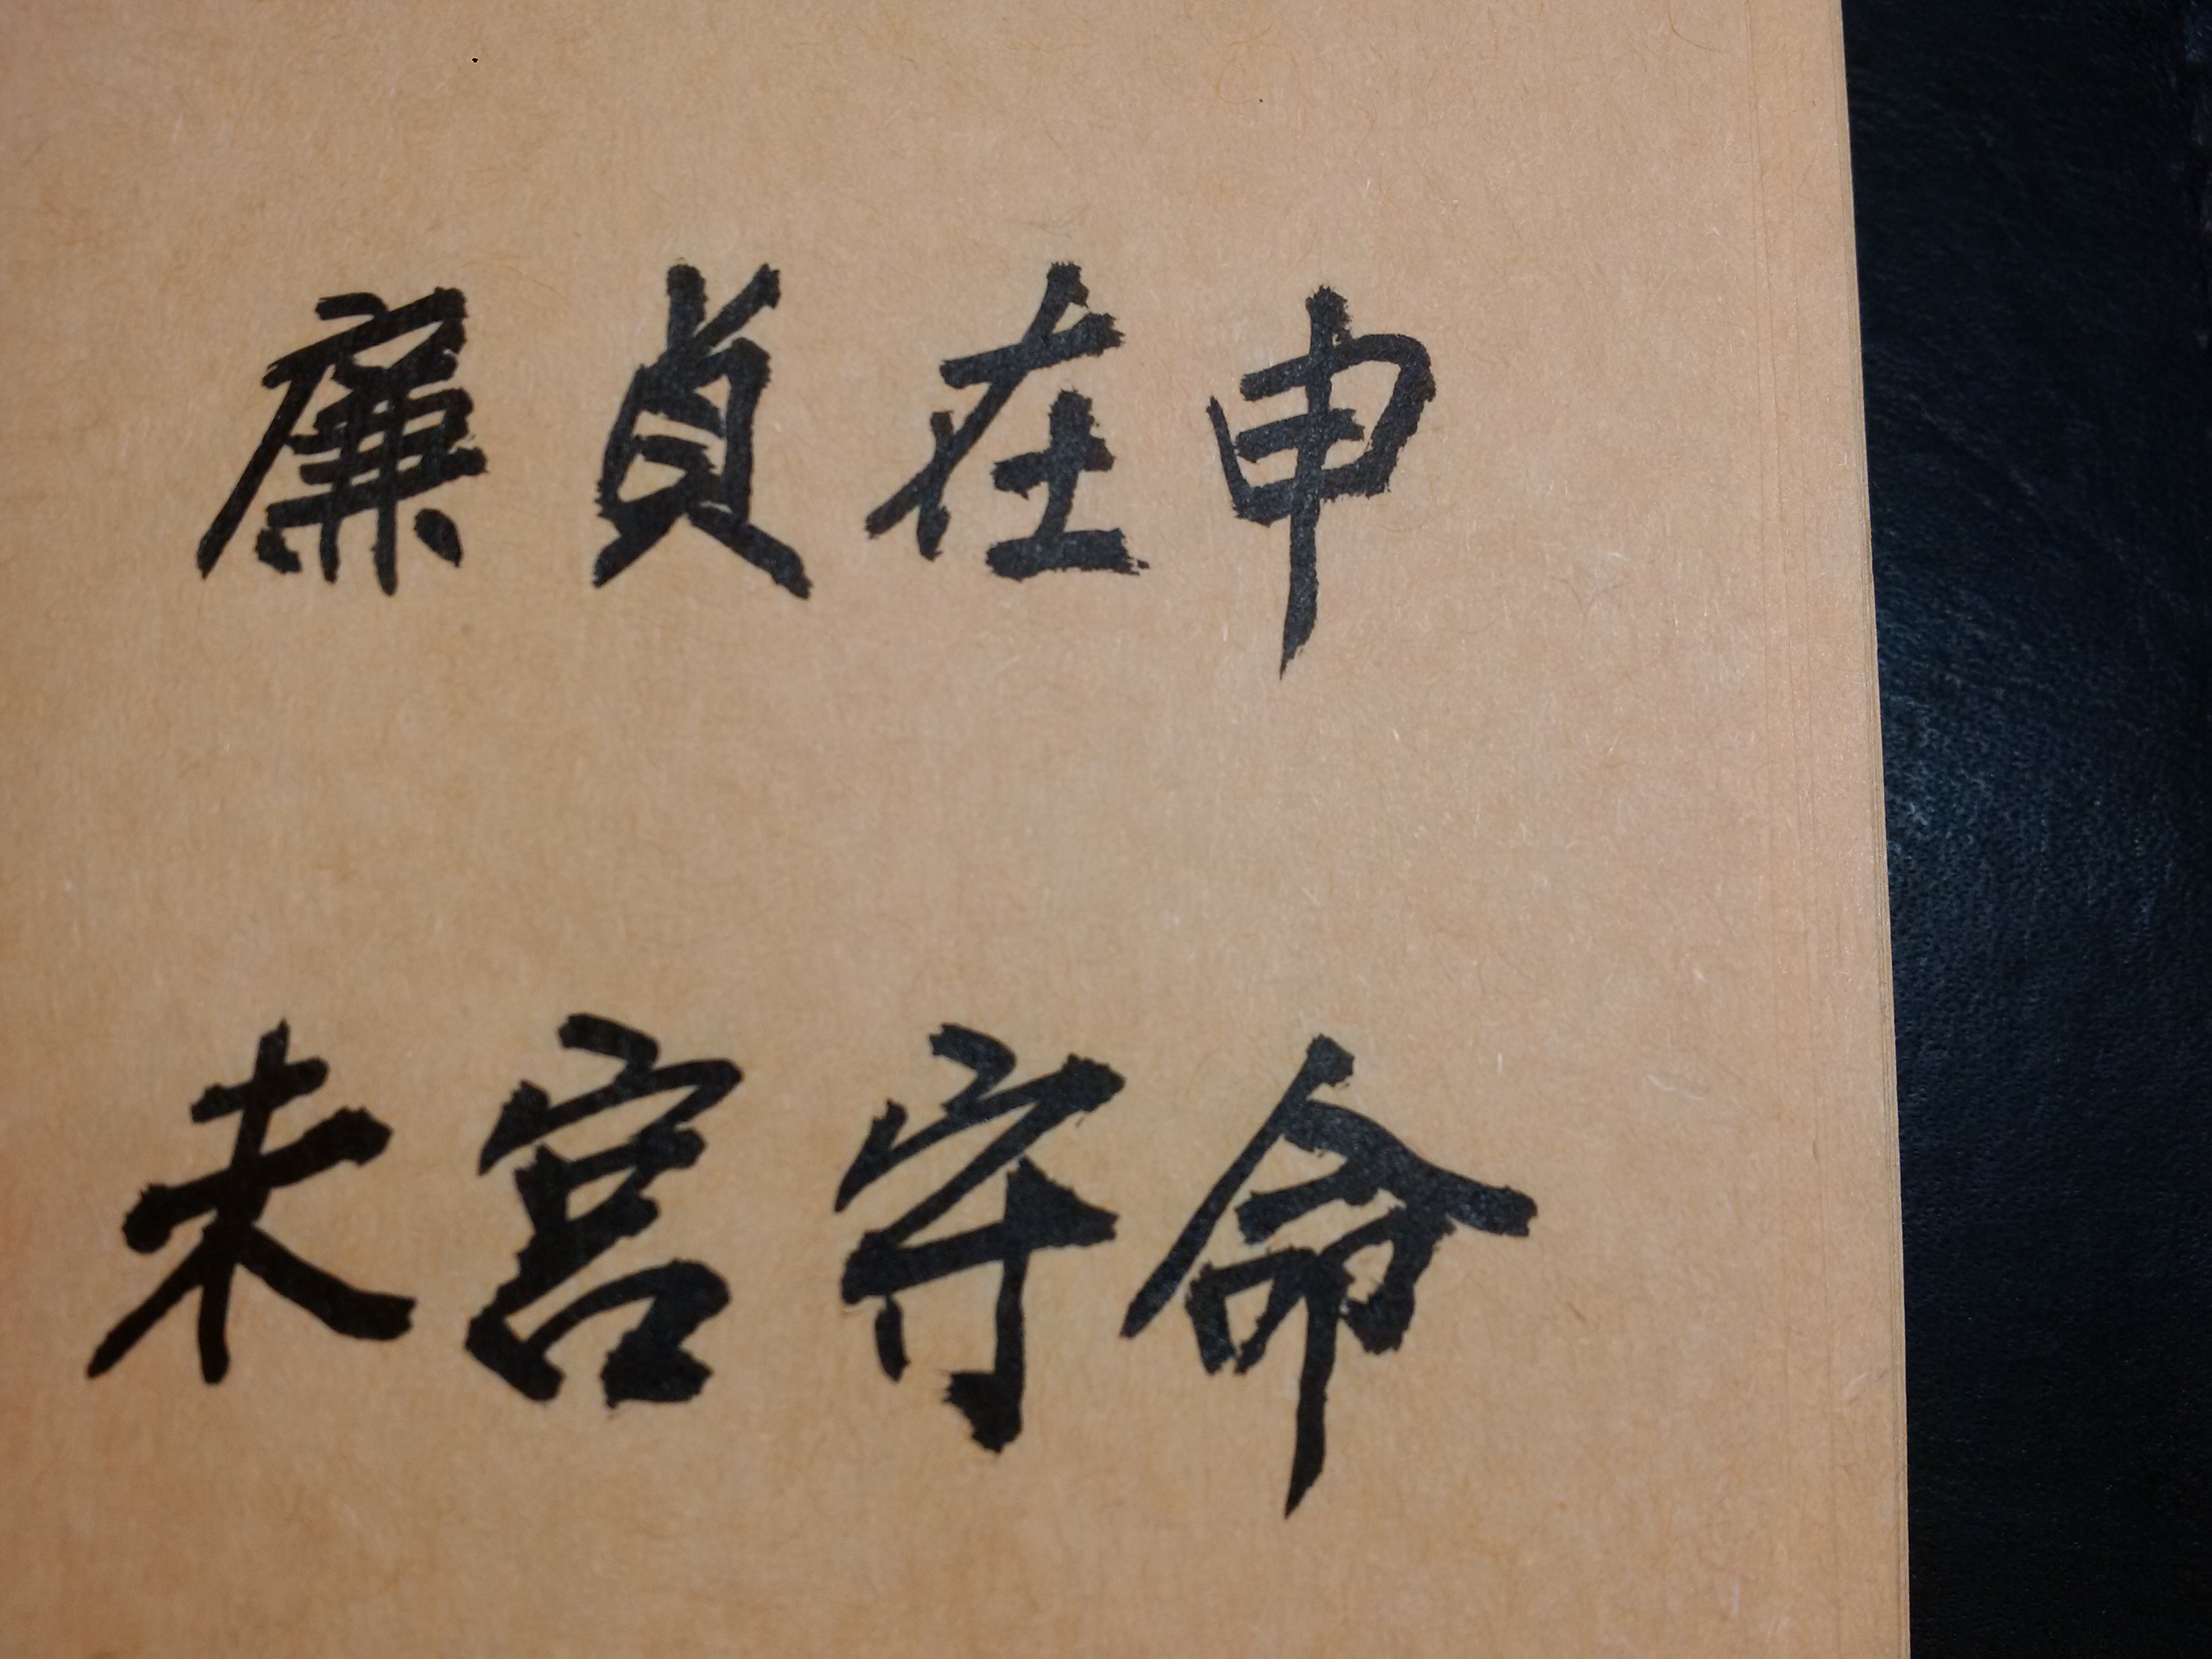 廉貞在申
未宮守命